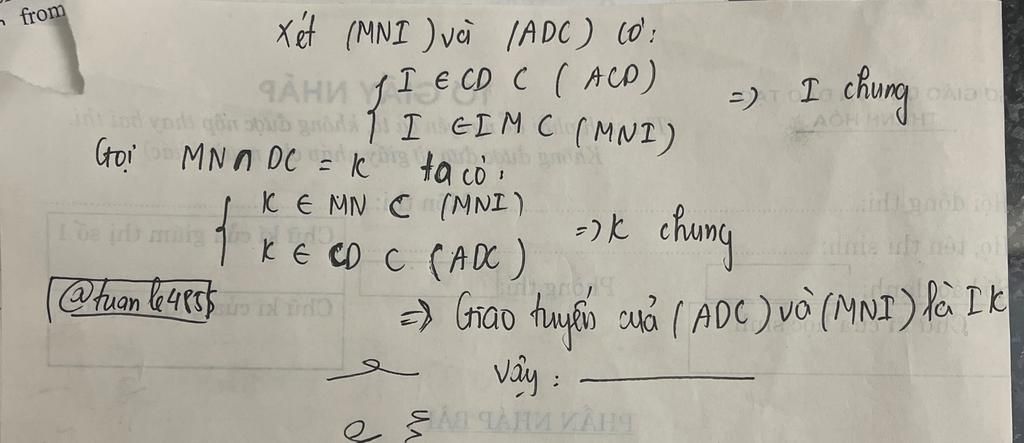 from
Xét (MNI) và (ADC) có:
{ I ∈ CD ⊂ (ACD)
I ∈ IM ⊂ (MNI) => I chung
Gọi MN ∩ DC = K ta có:
{ K ∈ MN ⊂ (MNI)
K ∈ CD ⊂ (ADC) => K chung
@tuanle4855
=> Giao tuyến của (ADC) và (MNI) là IK
Vậy: